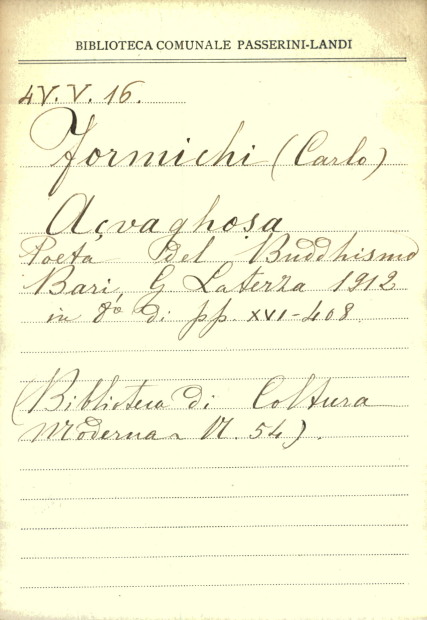 BIBLIOTECA COMUNALE PASSERINI-LANDI
4V.V.16.
Formichi (Carlo)
Açvaghosa
Poeta del Buddhismo
Bari, G Laterza 1912
in 8º di pp XVI-408
(Biblioteca di Coltura
Moderna N. 54).